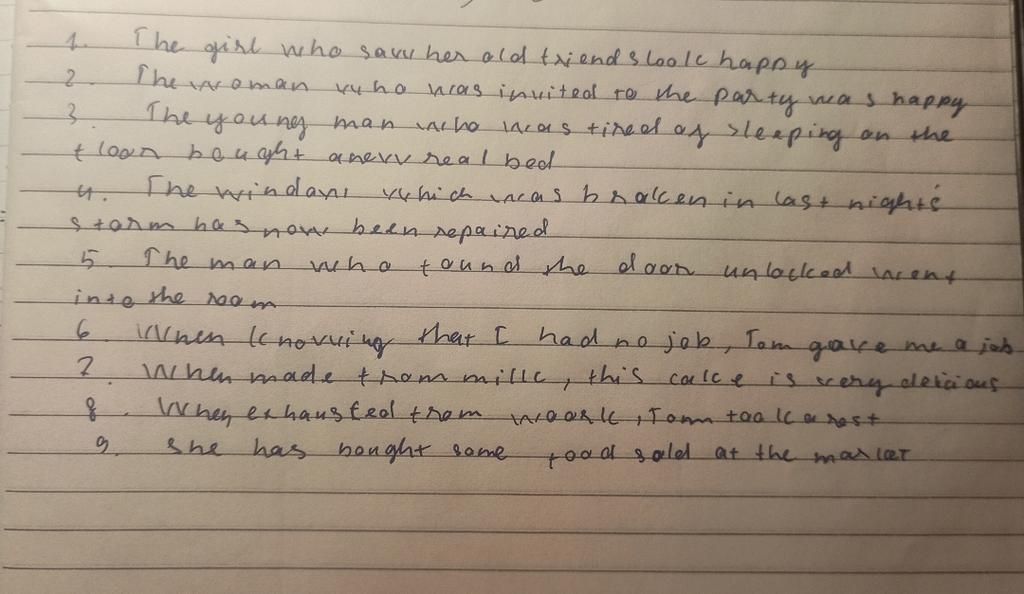 1. The girl who saw her old friends look happy
2. The woman who was invited to the party was happy
3. The young man who was tired of sleeping on the
floor bought a new real bed
4. The window which was broken in last night's
storm has now been repaired
5. The man who found the door unlocked went
into the room
6. When knowing that I had no job, Tom gave me a job
7. When made from milk, this cake is very delicious
8. When exhausted from woork, Tom took a rest
9. She has bought some food sold at the market